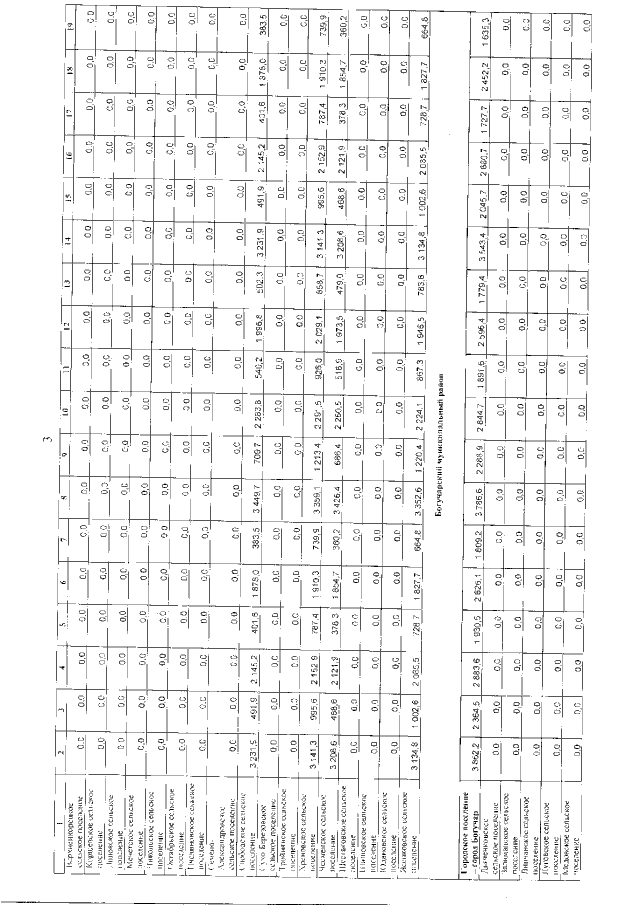 3
1 2 3 4 5 6 7 8 9 10 11 12 13 14 15 16 17 18 19
сельское поселение 0,0 0,0 0,0 0,0 0,0 0,0 0,0 0,0 0,0 0,0 0,0 0,0 0,0 0,0 0,0 0,0 0,0 0,0
Коршевское сельское
поселение 0,0 0,0 0,0 0,0 0,0 0,0 0,0 0,0 0,0 0,0 0,0 0,0 0,0 0,0 0,0 0,0 0,0 0,0
Липовское сельское
поселение 0,0 0,0 0,0 0,0 0,0 0,0 0,0 0,0 0,0 0,0 0,0 0,0 0,0 0,0 0,0 0,0 0,0 0,0
Мечетское сельское
поселение 0,0 0,0 0,0 0,0 0,0 0,0 0,0 0,0 0,0 0,0 0,0 0,0 0,0 0,0 0,0 0,0 0,0 0,0
Никольское сельское
поселение 0,0 0,0 0,0 0,0 0,0 0,0 0,0 0,0 0,0 0,0 0,0 0,0 0,0 0,0 0,0 0,0 0,0 0,0
Октябрьское сельское
поселение 0,0 0,0 0,0 0,0 0,0 0,0 0,0 0,0 0,0 0,0 0,0 0,0 0,0 0,0 0,0 0,0 0,0 0,0
сельское
поселение 0,0 0,0 0,0 0,0 0,0 0,0 0,0 0,0 0,0 0,0 0,0 0,0 0,0 0,0 0,0 0,0 0,0 0,0
Семено-
Александровское
сельское поселение 0,0 0,0 0,0 0,0 0,0 0,0 0,0 0,0 0,0 0,0 0,0 0,0 0,0 0,0 0,0 0,0 0,0 0,0
Слободское сельское
поселение 3 231,9 491,9 2 145,2 401,6 1 878,0 383,5 3 449,7 709,7 2 283,8 546,2 1 996,8 502,3 3 231,9 491,9 2 145,2 401,6 1 878,0 383,5
Сухо-Березовское
сельское поселение 0,0 0,0 0,0 0,0 0,0 0,0 0,0 0,0 0,0 0,0 0,0 0,0 0,0 0,0 0,0 0,0 0,0 0,0
Тройнянское сельское
поселение 0,0 0,0 0,0 0,0 0,0 0,0 0,0 0,0 0,0 0,0 0,0 0,0 0,0 0,0 0,0 0,0 0,0 0,0
Хреновское сельское
поселение 3 141,3 995,6 2 152,9 787,4 1 910,3 739,9 3 359,1 1 213,4 2 291,5 926,0 2 029,1 858,7 3 141,3 995,6 2 152,9 787,4 1 910,3 739,9
Чесменское сельское
поселение 3 208,6 468,6 2 121,9 378,3 1 854,7 360,2 3 426,4 686,4 2 260,5 516,9 1 973,5 479,0 3 208,6 468,6 2 121,9 378,3 1 854,7 360,2
Шестаковское сельское
поселение 0,0 0,0 0,0 0,0 0,0 0,0 0,0 0,0 0,0 0,0 0,0 0,0 0,0 0,0 0,0 0,0 0,0 0,0
Шишовское сельское
поселение 0,0 0,0 0,0 0,0 0,0 0,0 0,0 0,0 0,0 0,0 0,0 0,0 0,0 0,0 0,0 0,0 0,0 0,0
Юдановское сельское
поселение 0,0 0,0 0,0 0,0 0,0 0,0 0,0 0,0 0,0 0,0 0,0 0,0 0,0 0,0 0,0 0,0 0,0 0,0
Ясенковское сельское
поселение 3 134,8 1 002,6 2 085,5 728,7 1 827,7 664,8 3 352,6 1 220,4 2 224,1 867,3 1 946,5 783,6 3 134,8 1 002,6 2 085,5 728,7 1 827,7 664,8
Богучарский муниципальный район
Городское поселение
– город Богучар 3 562,2 2 364,5 2 883,6 1 930,5 2 626,1 1 809,2 3 786,6 2 268,9 2 844,7 1 891,6 2 596,4 1 779,4 3 543,4 2 045,7 2 680,7 1 727,7 2 452,2 1 635,3
Дьяченковское
сельское поселение 0,0 0,0 0,0 0,0 0,0 0,0 0,0 0,0 0,0 0,0 0,0 0,0 0,0 0,0 0,0 0,0 0,0 0,0
Залиманское сельское
поселение 0,0 0,0 0,0 0,0 0,0 0,0 0,0 0,0 0,0 0,0 0,0 0,0 0,0 0,0 0,0 0,0 0,0 0,0
Липчанское сельское
поселение 0,0 0,0 0,0 0,0 0,0 0,0 0,0 0,0 0,0 0,0 0,0 0,0 0,0 0,0 0,0 0,0 0,0 0,0
Луговское сельское
поселение 0,0 0,0 0,0 0,0 0,0 0,0 0,0 0,0 0,0 0,0 0,0 0,0 0,0 0,0 0,0 0,0 0,0 0,0
Медовское сельское
поселение 0,0 0,0 0,0 0,0 0,0 0,0 0,0 0,0 0,0 0,0 0,0 0,0 0,0 0,0 0,0 0,0 0,0 0,0